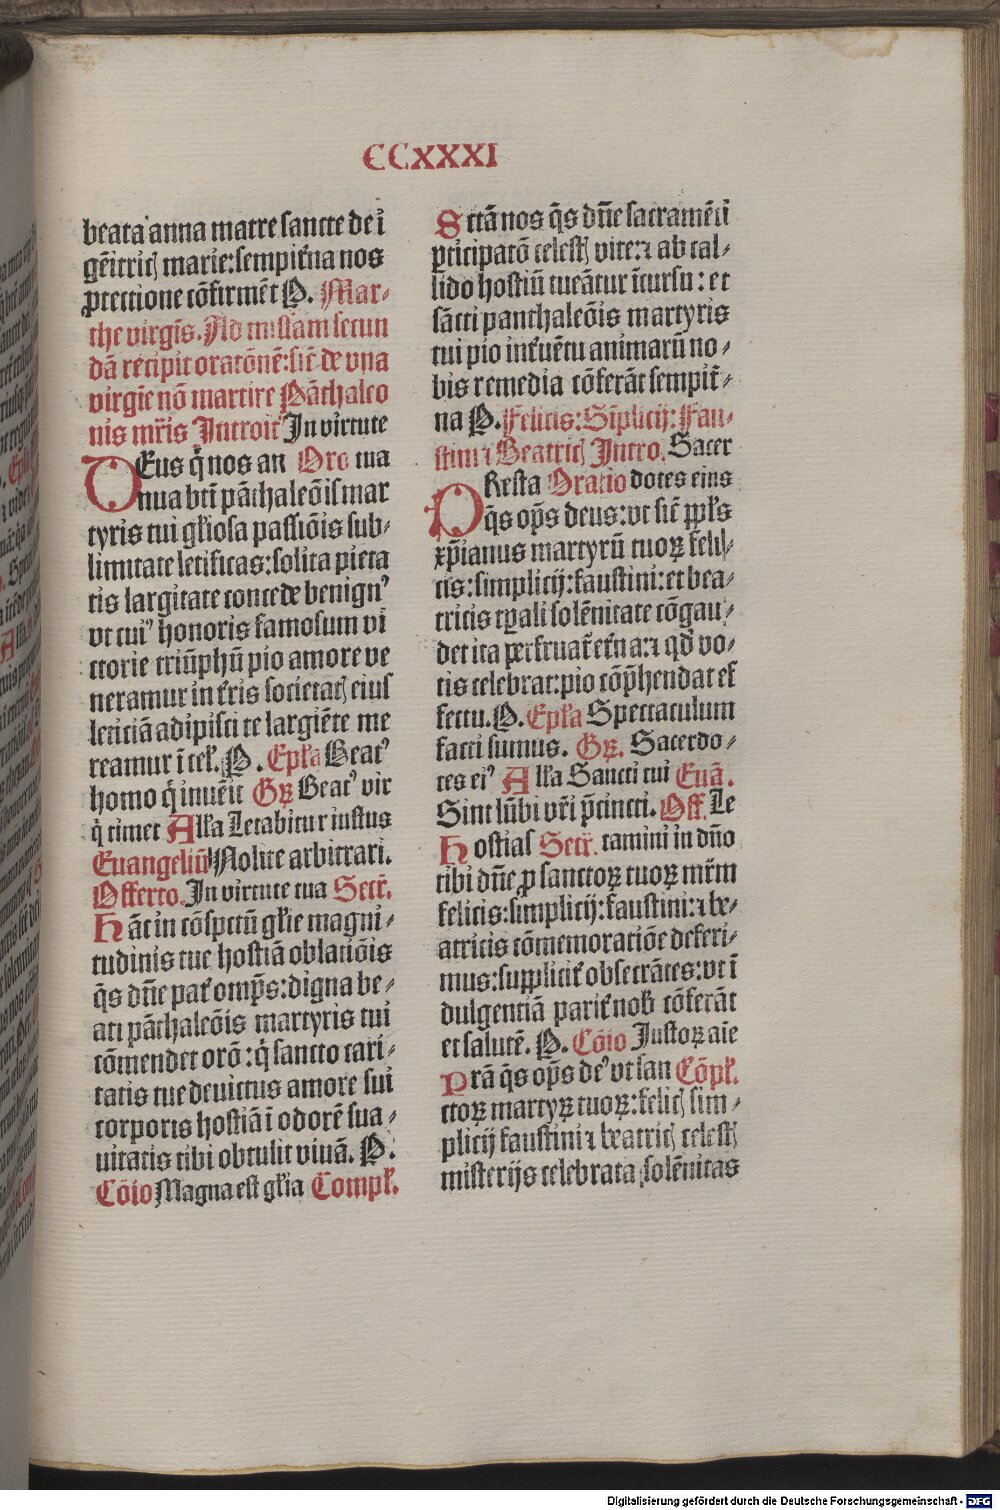 CCXXXI
beata anna matre sancte de ī
gēitricꝭ marie:sempit̃na nos
ꝓtectione cōfirmēt P. Mar-
the virgīs. Ad missam secun
dā recipit oratōnē:sic̄ de vna
virgīe nō martire Pāthaleo
nis mr̄is Introit̃ In virtute
DEus q̄ nos an Oro tua
nua bt̄i pāthaleōis mar
tyris tui gl̃iosa passiōis sub-
limitate letificas:solita pieta
tis largitate concede benignꝰ
vt tuiꝰ honoris famosum vi
ctorie triūphū pio amore ve
neramur in t̃ris societatꝭ eius
leticiā adipisci te largiēte me
reamur ī cel̃. P. Epl̃a Beatꝰ
homo q̄ inuēit Gꝝ Beatꝰ vir
q̄ timet All̃a Letabitur iustus
Euangeliū Nolite arbitrari.
Offerto. In virtute tua Secr̃.
Hāc in cōspectū gl̃ie magni-
tudinis tue hostiā oblatiōis
q̄s dn̄e pat̃ omp̄s:digna be-
ati pāthaleōis martyris tui
cōmendet orō:q̄ sancto cari-
tatis tue deuictus amore sui
corporis hostiā ī odorē sua-
uitatis tibi obtulit viuā. P.
Cōio Magna est gl̃ia Compl̃.
Sctā nos q̄s dn̄e sacramēti
ꝑticipatō celestꝭ vite:⁊ ab cal-
lido hostiū tueātur īcursu: et
sācti panthaleōis martyris
tui pio int̃uētu animarū no-
bis remedia cōferāt sempit̃-
na P. Felicis:Sīplicij:Fau-
stini ⁊ Beatricꝭ Intro. Sacer
PResta Oratio dotes eius
q̄s op̄s deus:vt sic̄ ppl̃s
xp̄ianus martyrū tuoꝝ feli-
cis:simplicij:faustini:et bea-
tricis tꝑali solēnitate cōgau-
det ita perfruat̃ et̃na:⁊ qd̄ vo-
tis celebrat:pio cōp̄hendat ef
fectu. P. Epl̃a Spectaculum
facti sumus. Gꝝ. Sacerdo-
tes eiꝰ All̃a Sancti tui Euā.
Sint lūbi vr̄i p̄cincti. Off. Le
Hostias Secr̃. tamini in dn̄o
tibi dn̄e ꝓ sanctoꝝ tuoꝝ mr̄m
felicis:simplicij:faustini:⁊ be-
atricis cōmemoratiōe deferi-
mus:supplicit̃ obsecrātes:vt ī
dulgentiā parit̃ nob̃ cōferāt
et salutē. P. Cōio Justoꝝ aīe
Prā q̄s op̄s deꝰ vt san Cōpl̃.
ctoꝝ martyꝝ tuoꝝ:felicꝭ sim-
plicij faustini ⁊ beatricꝭ celestꝭ
misterijs celebrata solēnitas
Digitalisierung gefördert durch die Deutsche Forschungsgemeinschaft - DFG